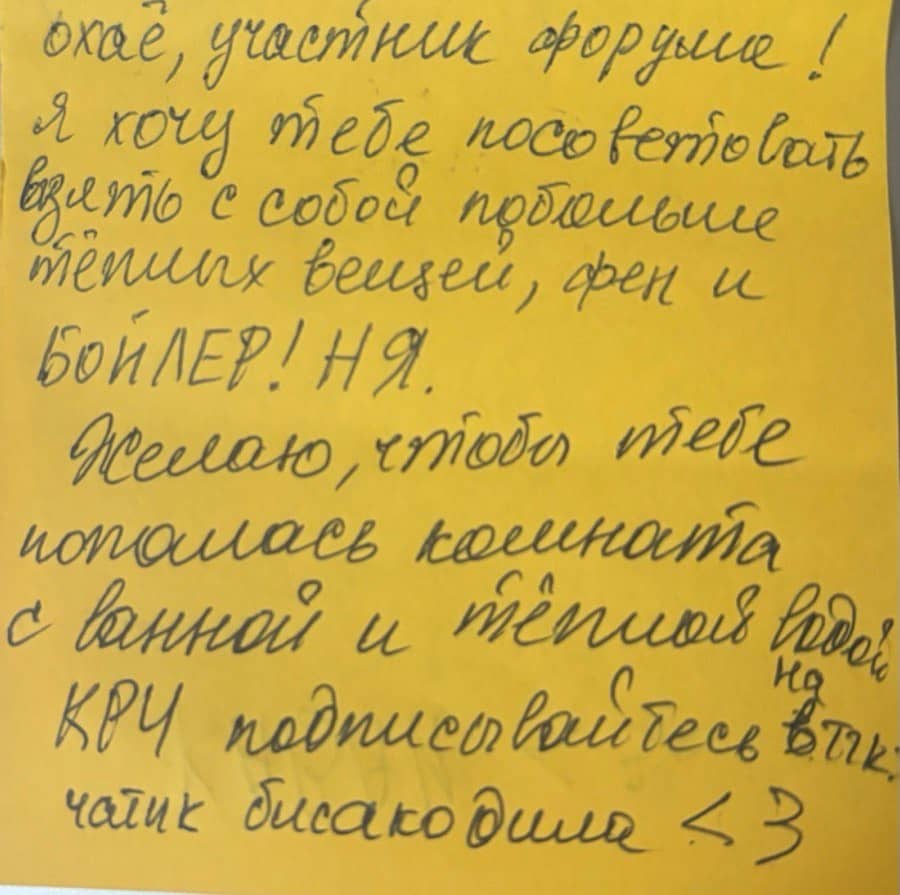 охаё, участник форума!
Я хочу тебе посоветовать
взять с собой побольше
тёплых вещей, фен и
БОЙЛЕР! НЯ.
Желаю, чтобы тебе
попалась комната
с ванной и тёплой водой
на
КРЧ подписывайтесь в тгк:
чатик бисакодила <3